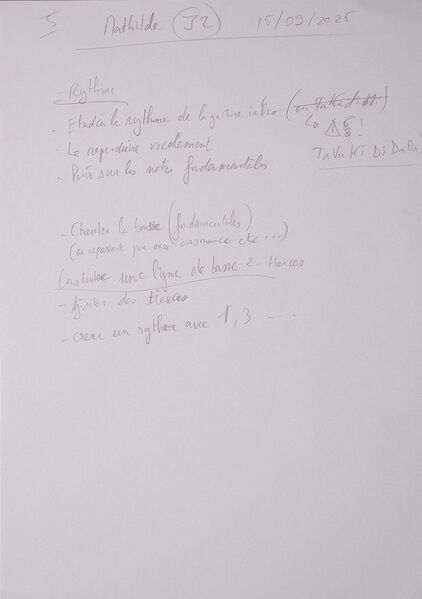 5 Mathilde J2 15/09/2025
- Rythme
- Etudier le rythme de la guitare intro (en TaKadimi)
↳ ⚠ 6/8 !
- Le reproduire vocalement
Ta Va Ki Di Da Ma
- Puis sur les notes fondamentales
- Chanter la basse (fondamentales)
(en repassant par consonance etc...)
Construire une ligne de basse 2 - tierces
- Ajouter des tierces
- créer un rythme avec 1, 3 ....